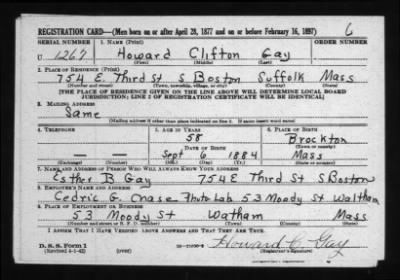 REGISTRATION CARD—(Men born on or after April 28, 1877 and on or before February 16, 1897) 6
SERIAL NUMBER 1. NAME (Print) ORDER NUMBER
U 1267 Howard Clifton Gay
(First) (Middle) (Last)
2. PLACE OF RESIDENCE (Print)
754 E. Third St S Boston Suffolk Mass
(Number and street) (Town, township, village, or city) (County) (State)
[THE PLACE OF RESIDENCE GIVEN ON THE LINE ABOVE WILL DETERMINE LOCAL BOARD
JURISDICTION; LINE 2 OF REGISTRATION CERTIFICATE WILL BE IDENTICAL]
3. MAILING ADDRESS
Same
[Mailing address if other than place indicated on line 2. If same insert word same]
4. TELEPHONE 5. AGE IN YEARS 6. PLACE OF BIRTH
58 Brockton
DATE OF BIRTH (Town or county)
Sept 6 1884 Mass
(Exchange) (Number) (Mo.) (Day) (Yr.) (State or country)
7. NAME AND ADDRESS OF PERSON WHO WILL ALWAYS KNOW YOUR ADDRESS
Esther B Gay 754 E Third St S Boston
8. EMPLOYER'S NAME AND ADDRESS
Cedric G. Chase Photo Lab 53 Moody St Waltham
9. PLACE OF EMPLOYMENT OR BUSINESS
53 Moody St Watham Mass
(Number and street or R. F. D. number) (Town) (County) (State)
I AFFIRM THAT I HAVE VERIFIED ABOVE ANSWERS AND THAT THEY ARE TRUE.
D. S. S. Form 1
(Revised 4-1-42) Howard C Gay